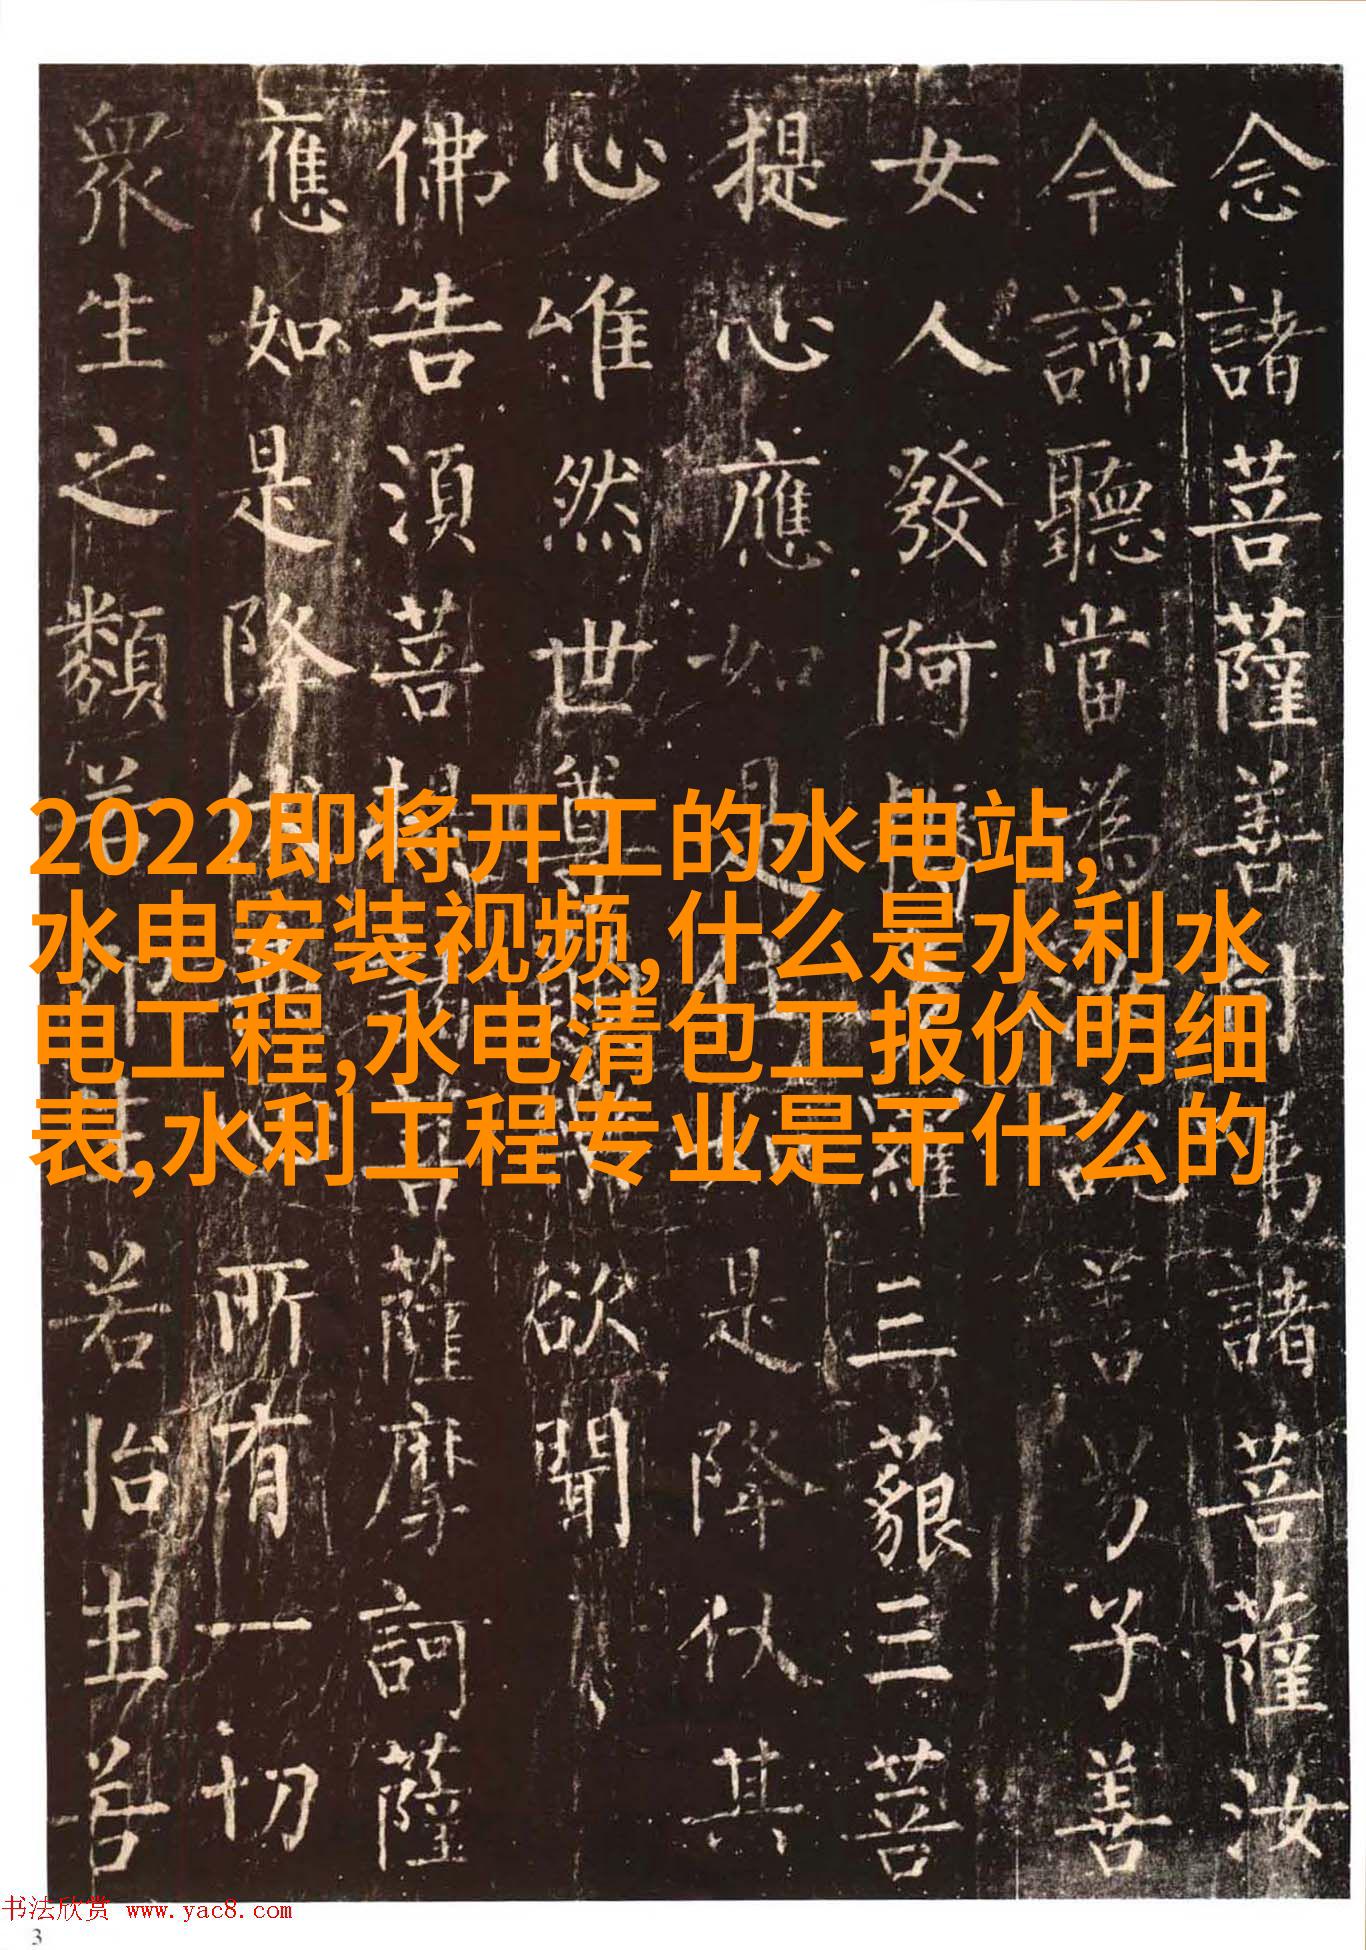 念諸菩薩善付囑諸菩薩汝
今諦聽當為汝說善男子善
女人發阿耨多羅三藐三菩
提心應如是住如是降伏其
心唯然世尊願樂欲聞
佛告須菩提諸菩薩摩訶薩
應如是降伏其心所有一切
眾生之類若卵生若胎生若
2022即将开工的水电站,
水电安装视频,什么是水利水
电工程,水电清包工报价明细
表,水利工程专业是干什么的
书法欣赏 www.yac8.com
3